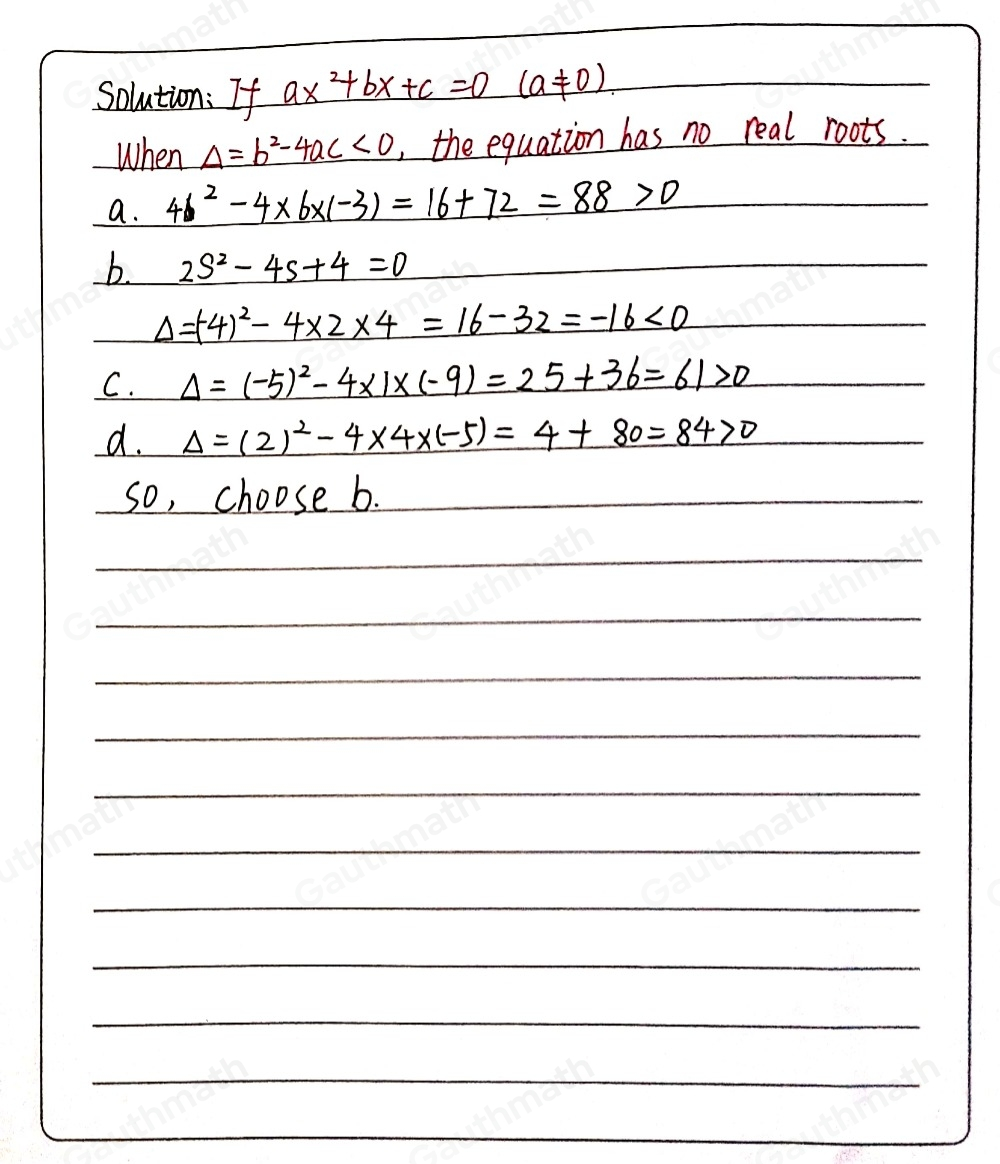 Solution: If ax²+bx+c=0 (a≠0).
When Δ=b²-4ac<0, the equation has no real roots.
a. 4² -4×6×(-3) = 16+72 = 88 >0
b. 2S²-4S+4=0
Δ=(-4)²-4×2×4 = 16-32=-16<0
C. Δ=(-5)²-4×1×(-9)=25+36=61>0
d. Δ=(2)²-4×4×(-5)= 4+80=84>0
so, choose b.
Gauthmath